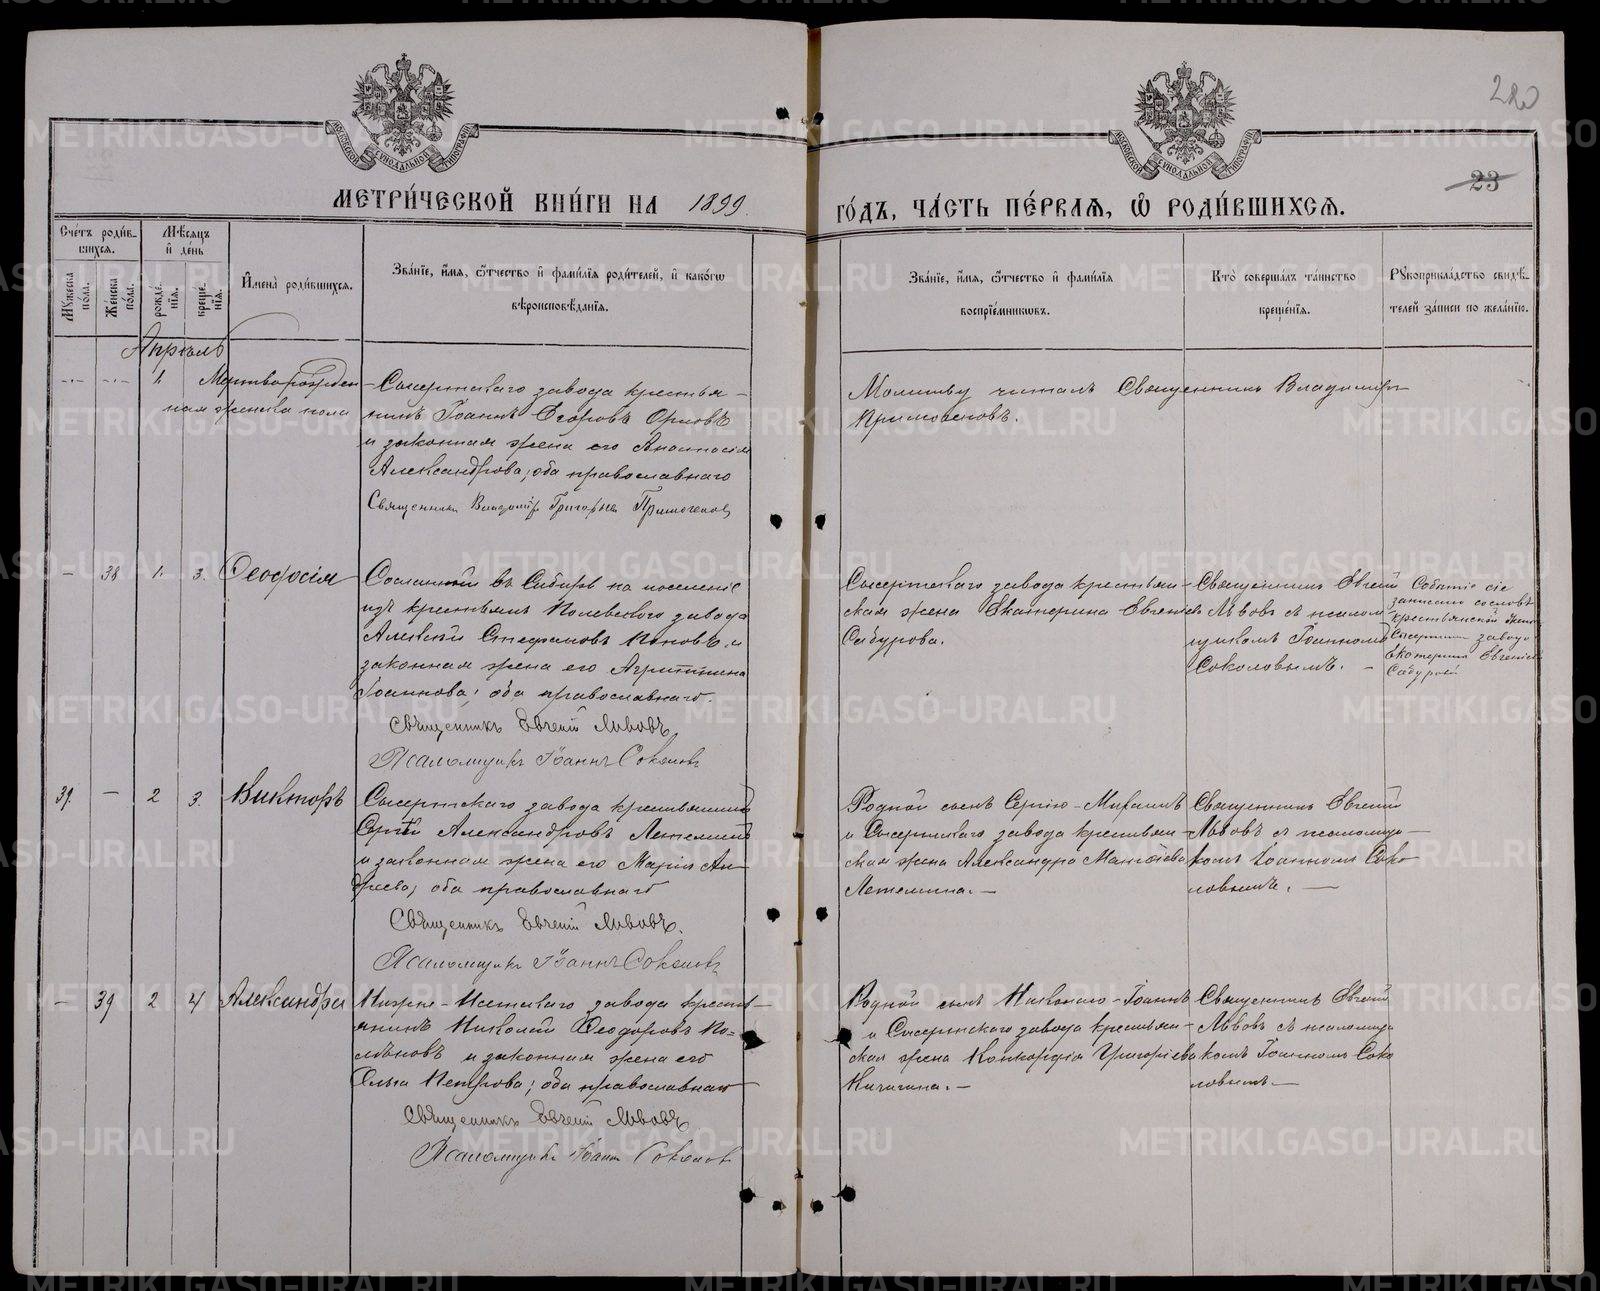 220
23
МОСКОВСКОЙ СѴНОДАЛЬНОЙ ТИПОГРАФІИ
МОСКОВСКОЙ СѴНОДАЛЬНОЙ ТИПОГРАФІИ
МЕТРИ́ЧЕСКОЙ КНИ́ГИ НА 1899.
ГО́ДЪ, ЧА́СТЬ ПЕ́РВАЯ, Ѡ РОДИ́ВШИХСЯ.
Сче́тъ роди́в-
шихся.
Му́жеска по́ла.
Же́нска по́ла.
Мѣ́сяцъ
и де́нь
рожде́-
нія.
креще́-
нія.
Имена̀ роди́вшихся.
Зва́ніе, и́мя, ѻ́тчество и фами́лія роди́телей, и како́гѡ
вѣроисповѣ́данія.
Зва́ніе, и́мя, ѻ́тчество и фами́лія
воспріе́мниковъ.
Кто̀ соверша́лъ та́инство
креще́нія.
Рукоприкла́дство свидѣ́-
телей за́писи по жела́нію.
Апрѣль
1 Мертворожден
ная женска пола
Сысертскаго завода крестья-
нинъ Іоаннъ Егоровъ Орловъ
и законная жена его Анастасія
Александрова; оба православнаго
Священникъ Владимір Григорьев
Молитву читалъ Священникъ Владиміръ
- 38 1. 3. Феодосія
Сосланный въ Сибирь на поселеніе
изъ крестьянъ Полевскаго завода
Алексѣй Стефановъ Поповъ и
законная жена его Агриппина
Іоаннова; оба православнаго.
Священникъ Евгеній Львовъ.
Псаломщикъ Іоаннъ Соколовъ
Сысертскаго завода крестьян-
ская жена Екатерина Евгеніева
Сабурова.
Священникъ Евгеній
Львовъ съ псалом-
щикомъ Іоанномъ
Соколовымъ. -
Событіе сіе
записано со словъ
крестьянской жены
Сысертскаго завода
Екатерины Евгеніевой
Сабуровой
37. - 2 3. Викторъ
Сысертскаго завода крестьянинъ
Сергѣй Александровъ Летеминъ
и законная жена его Марія Ан-
дреева; оба православнаго
Священникъ Евгеній Львовъ.
Псаломщикъ Іоаннъ Соколовъ
Родной сынъ Сергія-Михаилъ
и Сысертскаго завода крестьян-
ская жена Александра
Летемина.-
Священникъ Евгеній
Львовъ съ псаломщи-
комъ Іоанномъ Соко-
ловымъ. -
- 39 2 4 Александра
завода кресть-
янинъ Николай Феодоровъ По-
и законная жена его
Ольга Петрова; оба православнаго
Священникъ Евгеній Львовъ
Псаломщикъ Іоаннъ Соколовъ
Родной
и Сысертскаго завода крестьян-
ская жена Конкордія Григоріева
Кичигина.-
Священникъ Евгеній
Львовъ съ псаломщи-
комъ Іоанномъ Соко-
ловымъ.-